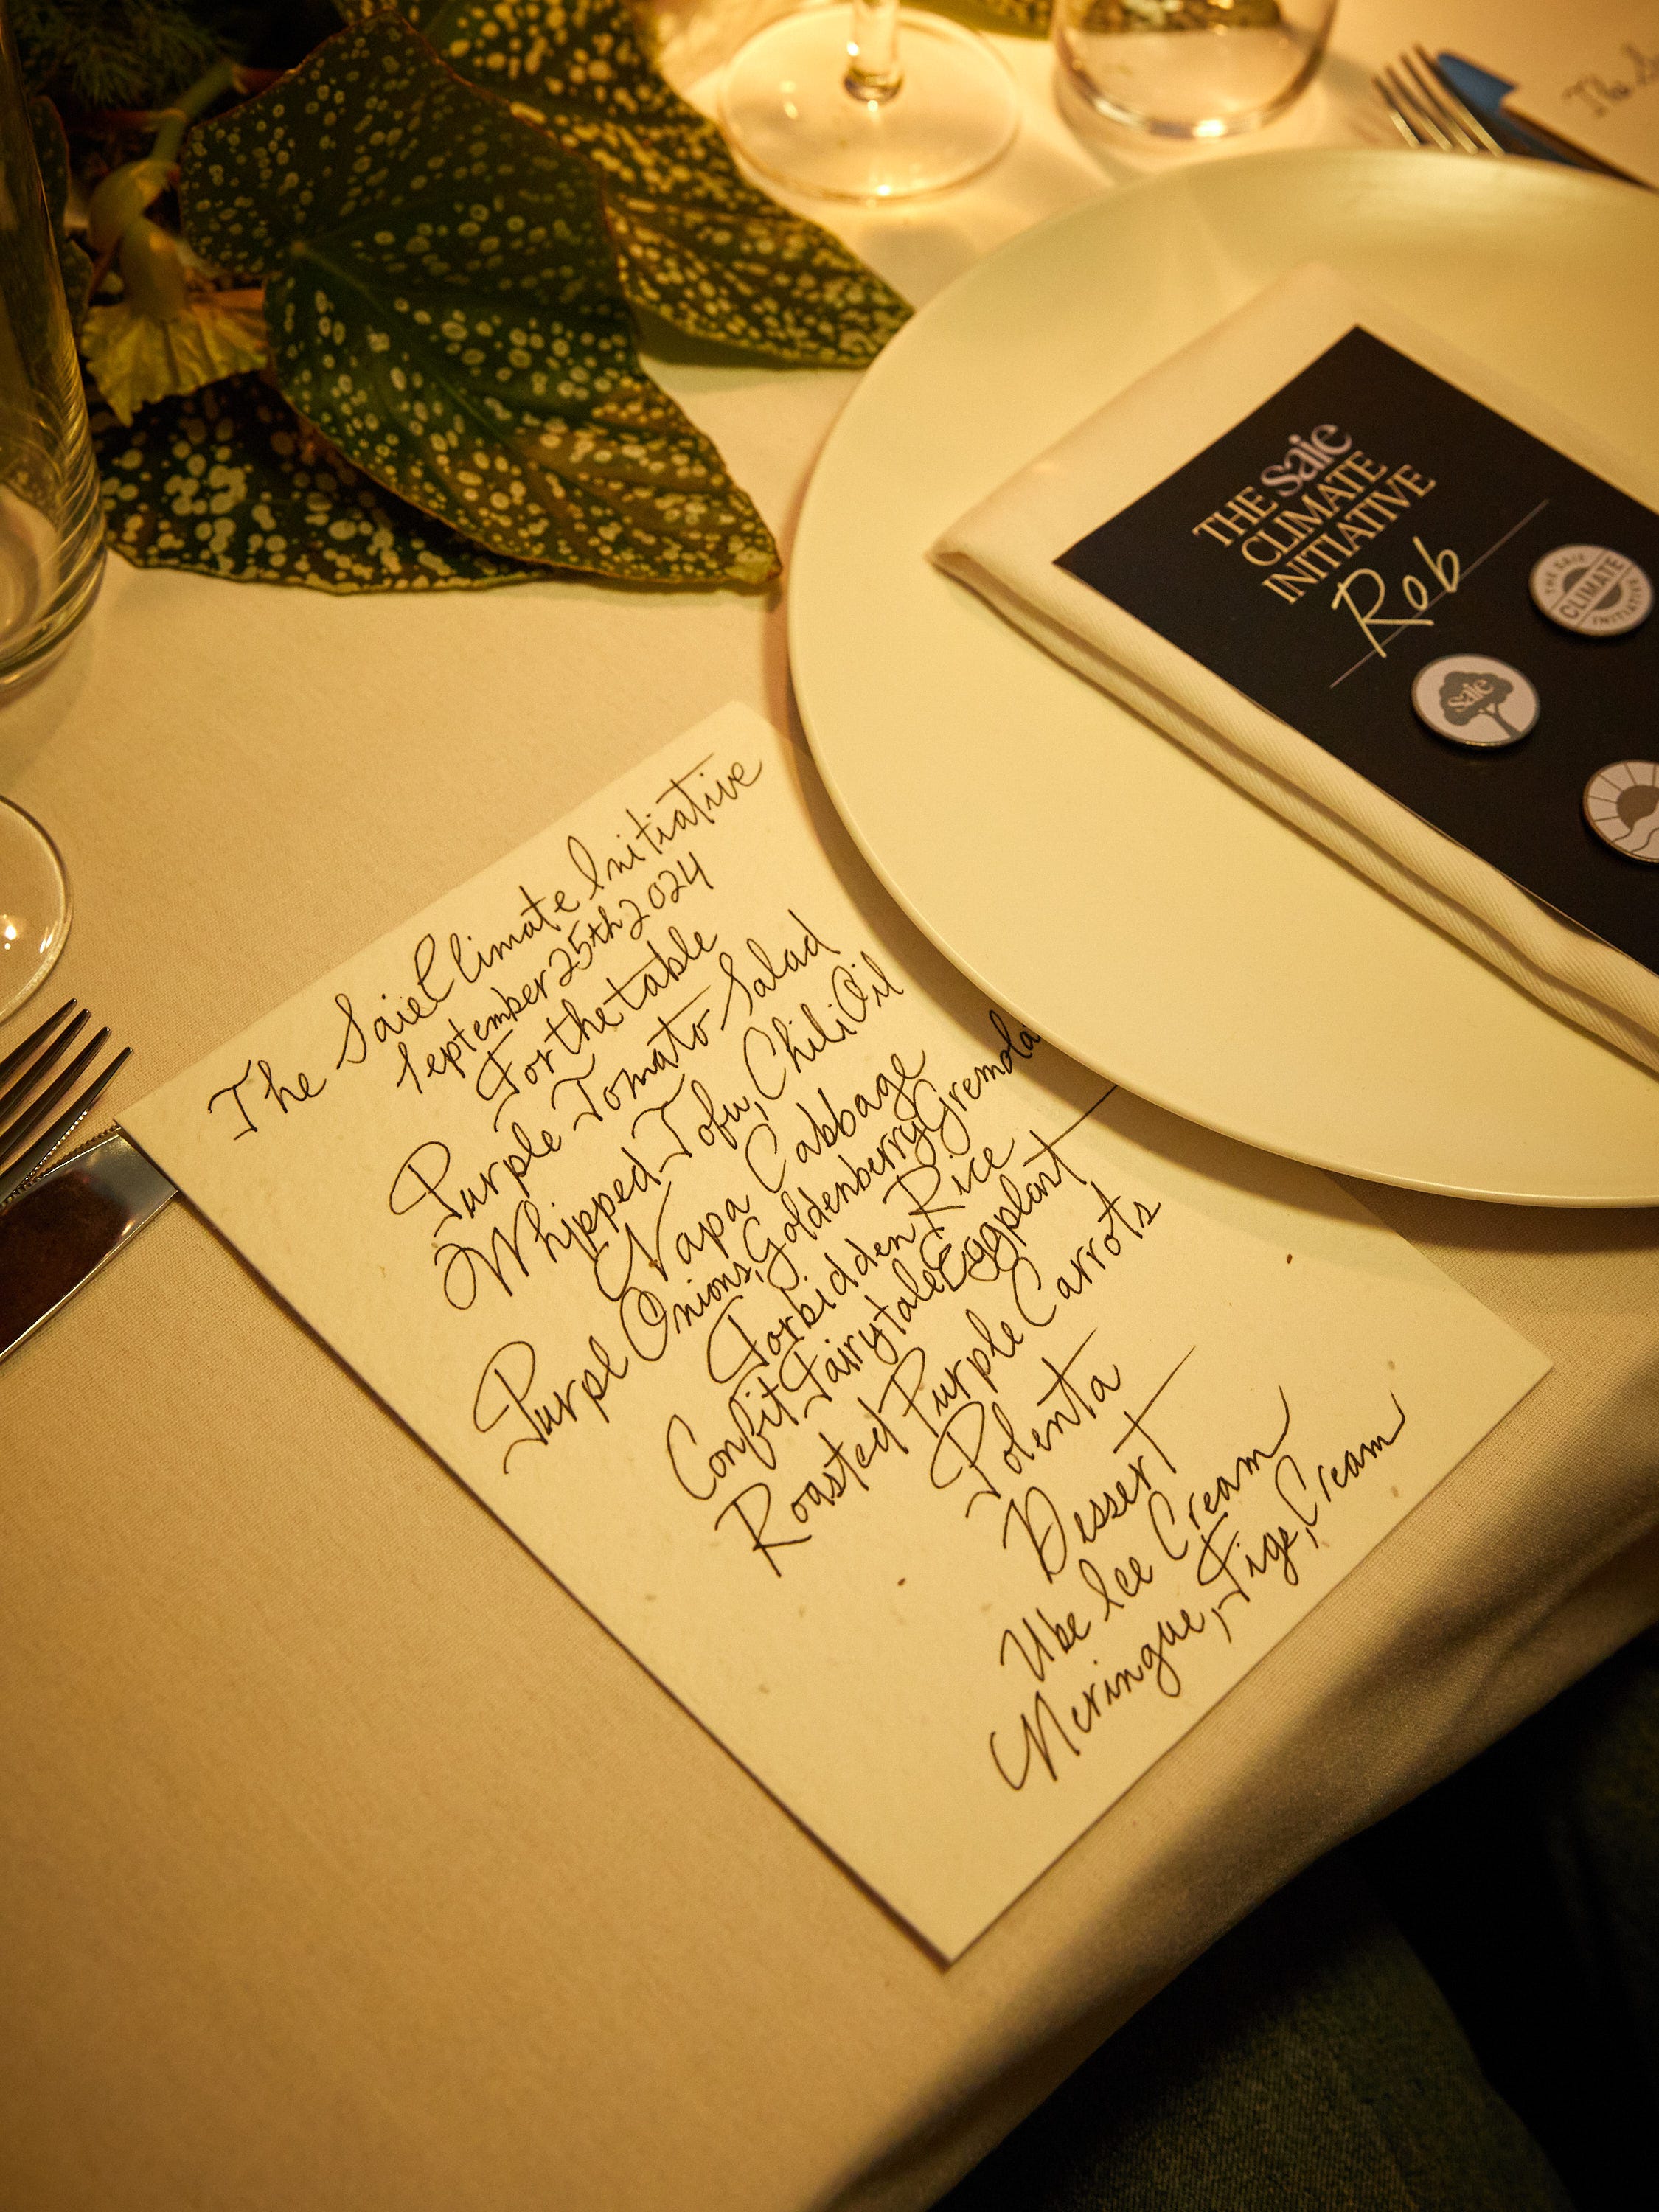 The Saie Climate Initiative
September 25th 2024
For the table
Purple Tomato Salad
Whipped Tofu, Chili Oil
Napa Cabbage
Purple Onions, Goldenberry Gremola
Forbidden Rice
Confit Fairytale Eggplant
Roasted Purple Carrots
Polenta
Dessert
Ube Ice Cream
Meringue, Figs, Cream
THE saie
CLIMATE
INITIATIVE
Rob
THE SAIE
CLIMATE
INITIATIVE
saie
The